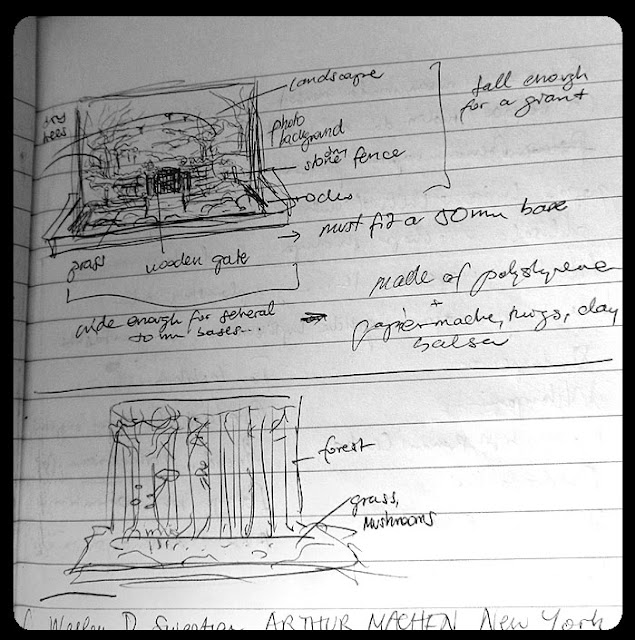 landscape
tall enough
for a giant
tiny
trees
photo
background
stone fence
rocks
must fit a 50mm base
grass
wooden gate
made of polystyrene
+
papier mache, twigs, clay
balsa
wide enough for several
50 mm bases...
forest
grass,
mushrooms
ARTHUR MACHEN New York